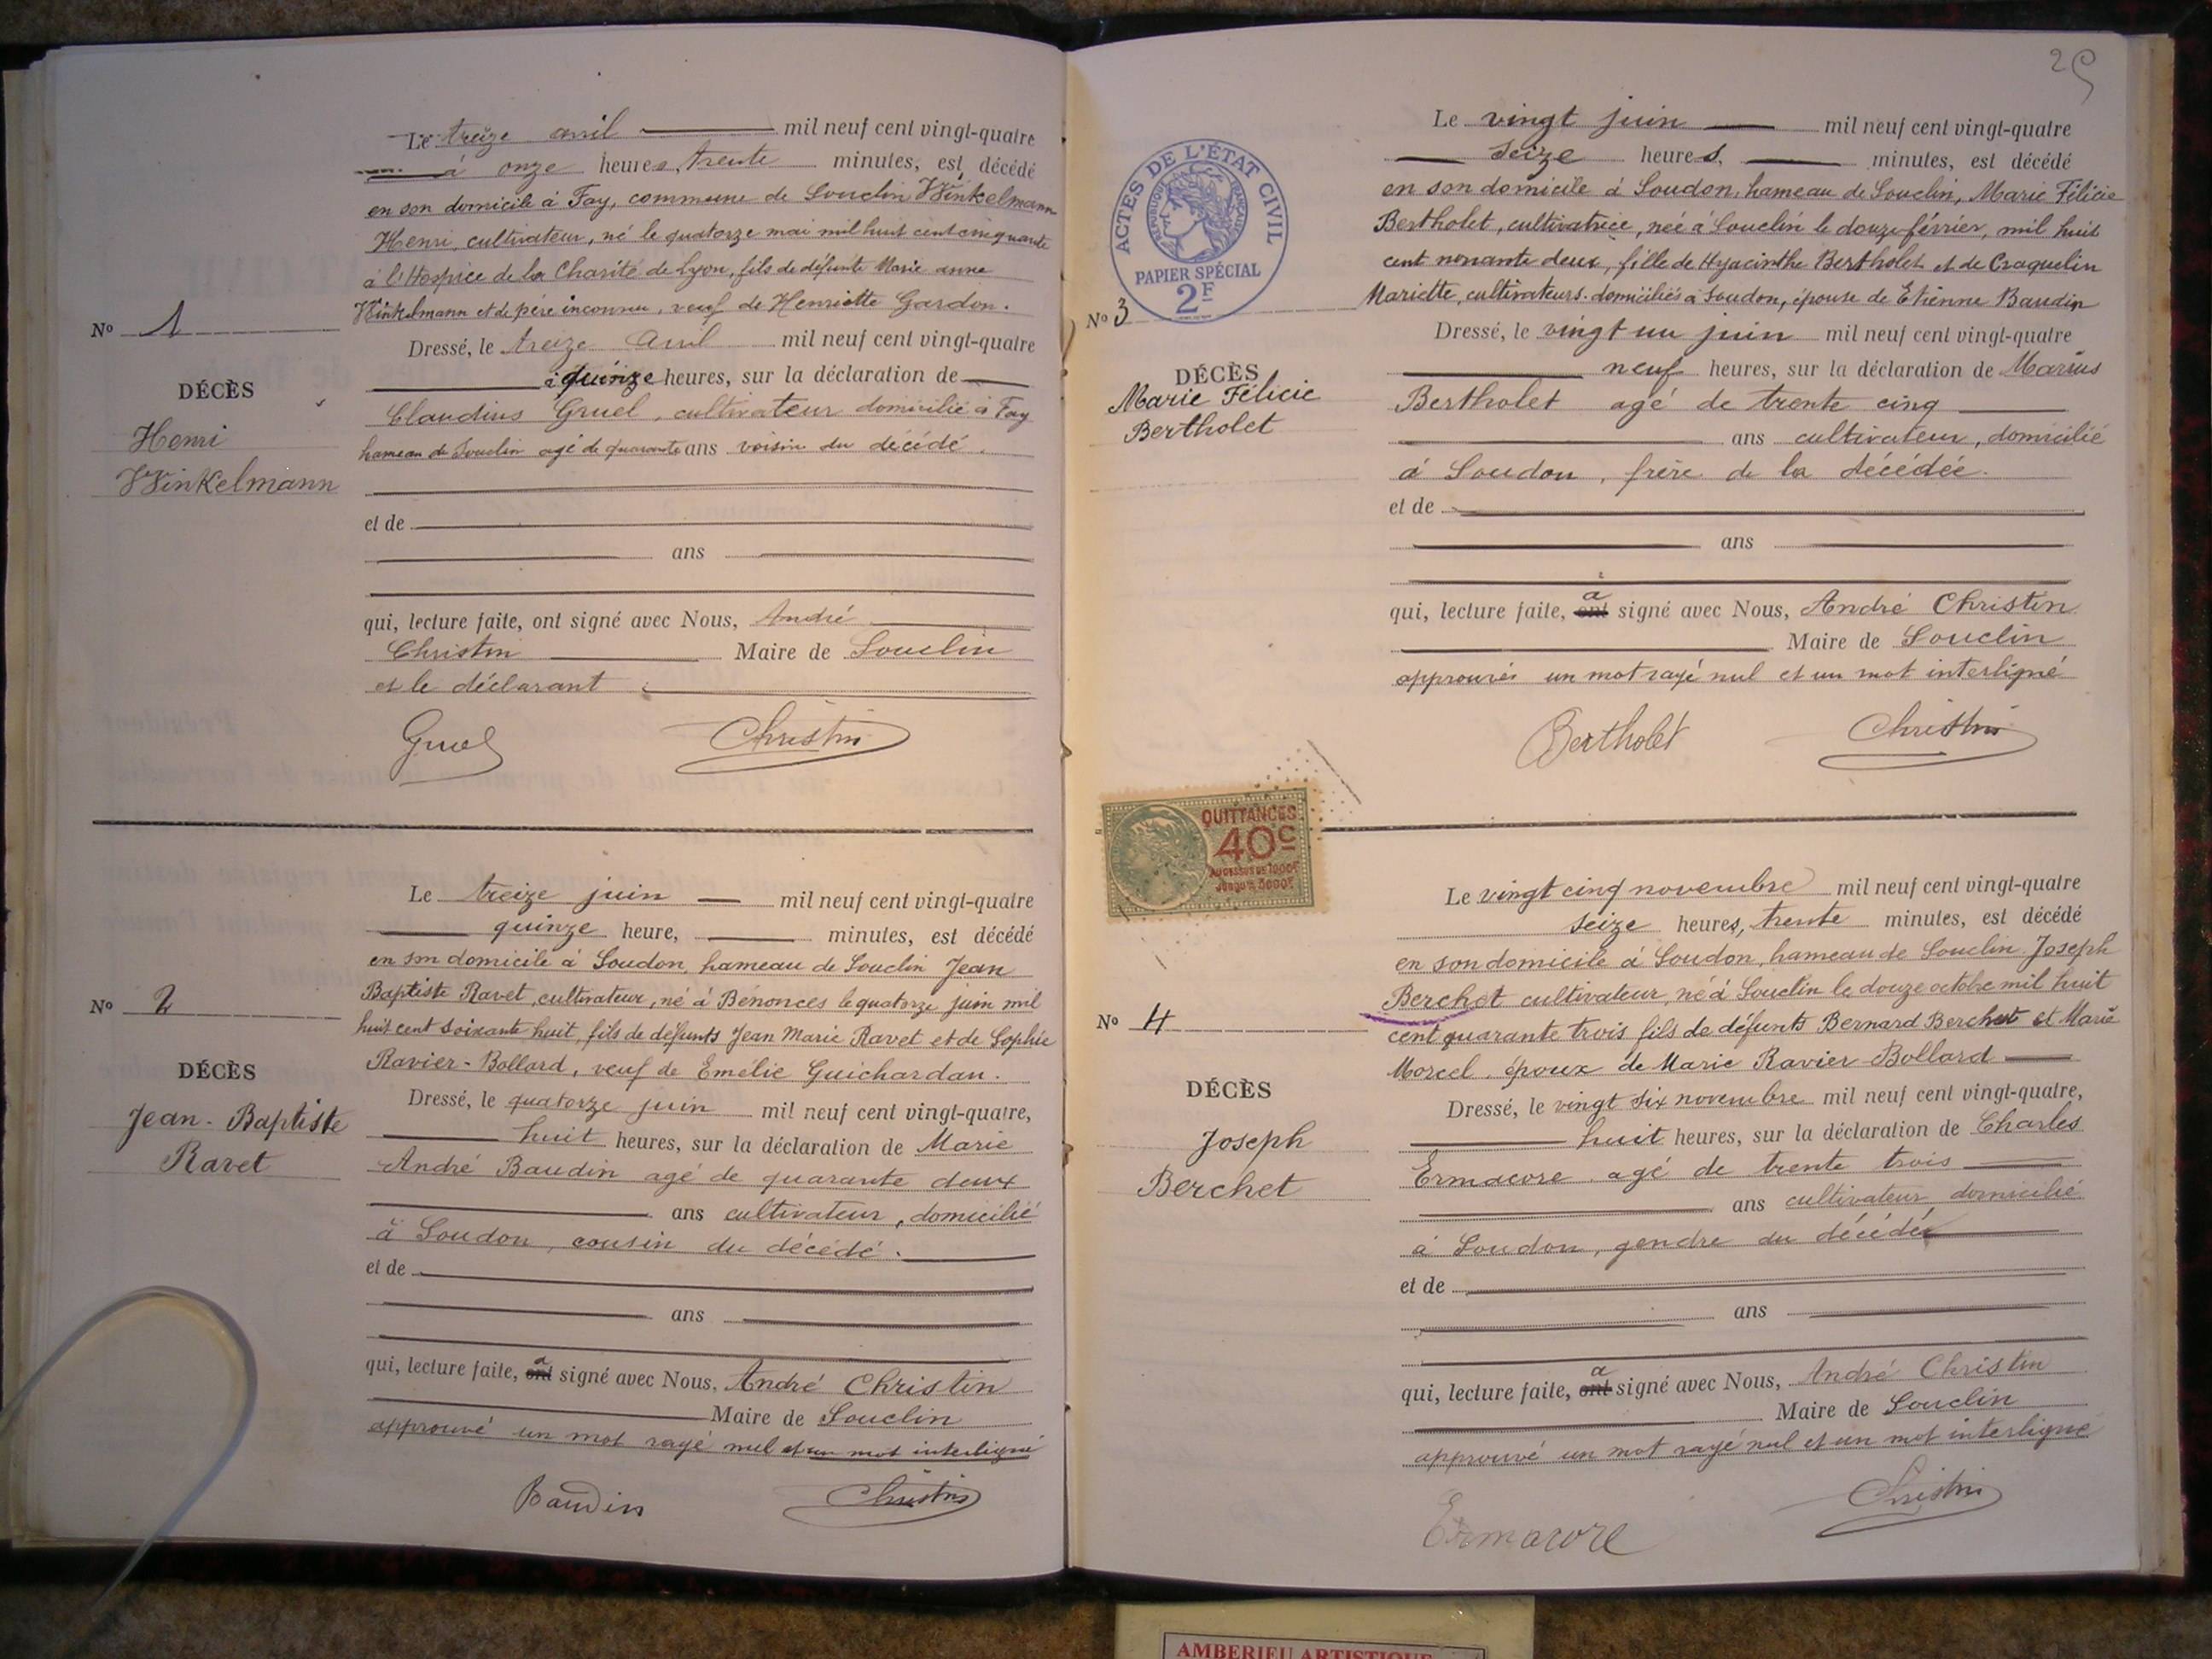 Le treize avril mil neuf cent vingt-quatre
à onze heures, trente minutes, est décédé
en son domicile à Fay, commune de Souclin Winkelmann
Henri, cultivateur, né le quatorze mai mil huit cent cinquante
à l'Hospice de la Charité de Lyon, fils de défunte Marie anne
Winkelmann et de père inconnu, veuf de Henriette Gardon.
Nº 1
Dressé, le treize Avril mil neuf cent vingt-quatre
à quinze heures, sur la déclaration de
DÉCÈS
Claudius Gruel, cultivateur domicilié à Fay
Henri
hameau de Souclin agé de quarante ans voisin du décédé.
Winkelmann
et de
ans
qui, lecture faite, ont signé avec Nous, André
Christin Maire de Souclin
et le déclarant
Gruel Christin
Le treize juin mil neuf cent vingt-quatre
quinze heure, minutes, est décédé
en son domicile à Soudon, hameau de Souclin Jean
Baptiste Ravet, cultivateur, né à Bénonces le quatorze juin mil
Nº 2
huit cent soixante huit, fils de défunts Jean Marie Ravet et de Sophie
Ravier-Bollard, veuf de Emélie Guichardan.
DÉCÈS
Dressé, le quatorze juin mil neuf cent vingt-quatre,
Jean-Baptiste
huit heures, sur la déclaration de Marie
Ravet
André Baudin agé de quarante deux
ans cultivateur, domicilié
à Soudon, cousin du décédé.
et de
ans
qui, lecture faite, ont a signé avec Nous, André Christin
Maire de Souclin
approuvé un mot rayé nul et un mot interligné
Baudin Christin
25
ACTES DE L'ÉTAT CIVIL
RÉPUBLIQUE FRANÇAISE
PAPIER SPÉCIAL
2F
Le vingt juin mil neuf cent vingt-quatre
seize heures, minutes, est décédé
en son domicile à Soudon, hameau de Souclin, Marie Félicie
Bertholet, cultivatrice, née à Souclin le douze février, mil huit
cent nonante deux, fille de Hyacinthe Bertholet et de Craquelin
Mariette, cultivateurs domiciliés à Soudon, épouse de Etienne Baudin
Nº 3
Dressé, le vingt un juin mil neuf cent vingt-quatre
DÉCÈS
neuf heures, sur la déclaration de Marius
Marie Félicie
Bertholet agé de trente cinq
Bertholet
ans cultivateur, domicilié
à Soudon, frère de la décédée.
et de
ans
qui, lecture faite, ont a signé avec Nous, André Christin
Maire de Souclin
approuvés un mot rayé nul et un mot interligné
Bertholet Christin
QUITTANCES
40c
AU DESSUS DE 1000F
JUSQU'À 3000F
Le vingt cinq novembre mil neuf cent vingt-quatre
seize heures, trente minutes, est décédé
en son domicile à Soudon, hameau de Souclin Joseph
Berchet cultivateur, né à Souclin le douze octobre mil huit
Nº 4
cent quarante trois fils de défunts Bernard Berchet et Marie
Morcel, époux de Marie Ravier-Bollard
DÉCÈS
Dressé, le vingt six novembre mil neuf cent vingt-quatre,
Joseph
huit heures, sur la déclaration de Charles
Berchet
Ermacore agé de trente trois
ans cultivateur, domicilié
à Soudon, gendre du décédé
et de
ans
qui, lecture faite, ont a signé avec Nous, André Christin
Maire de Souclin
approuvé un mot rayé nul et un mot interligné
Ermacore Christin
AMBERIEU ARTISTIQUE